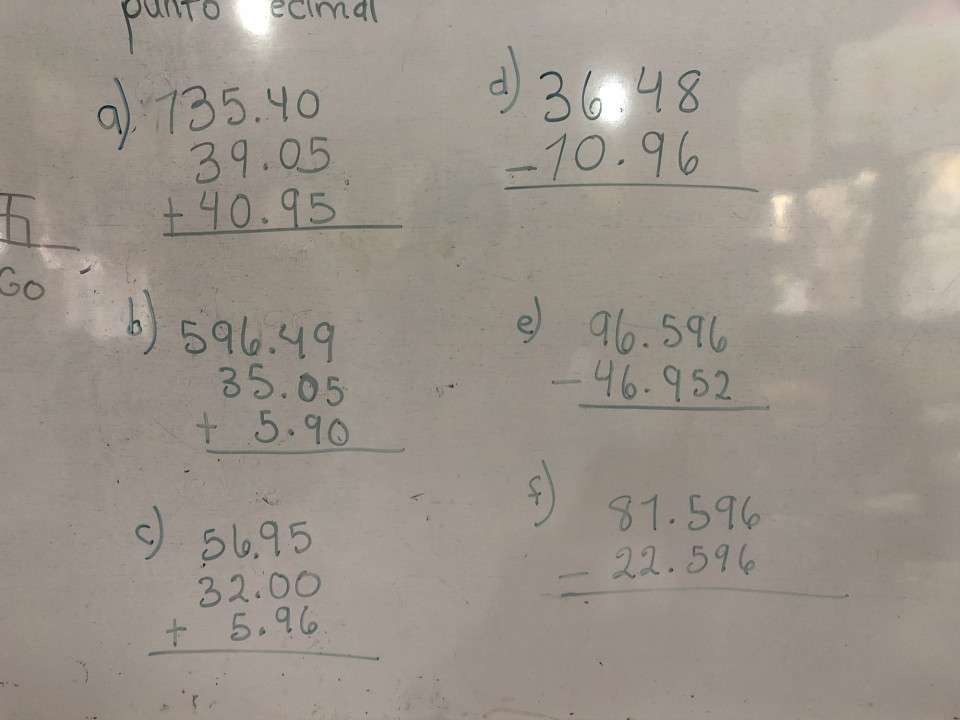 punto decimal
a) 135.40
39.05
+ 40.95
b) 596.49
35.05
+ 5.90
c) 56.95
32.00
+ 5.96
d) 36.48
- 10.96
e) 96.596
- 46.952
f) 81.596
- 22.596
Go